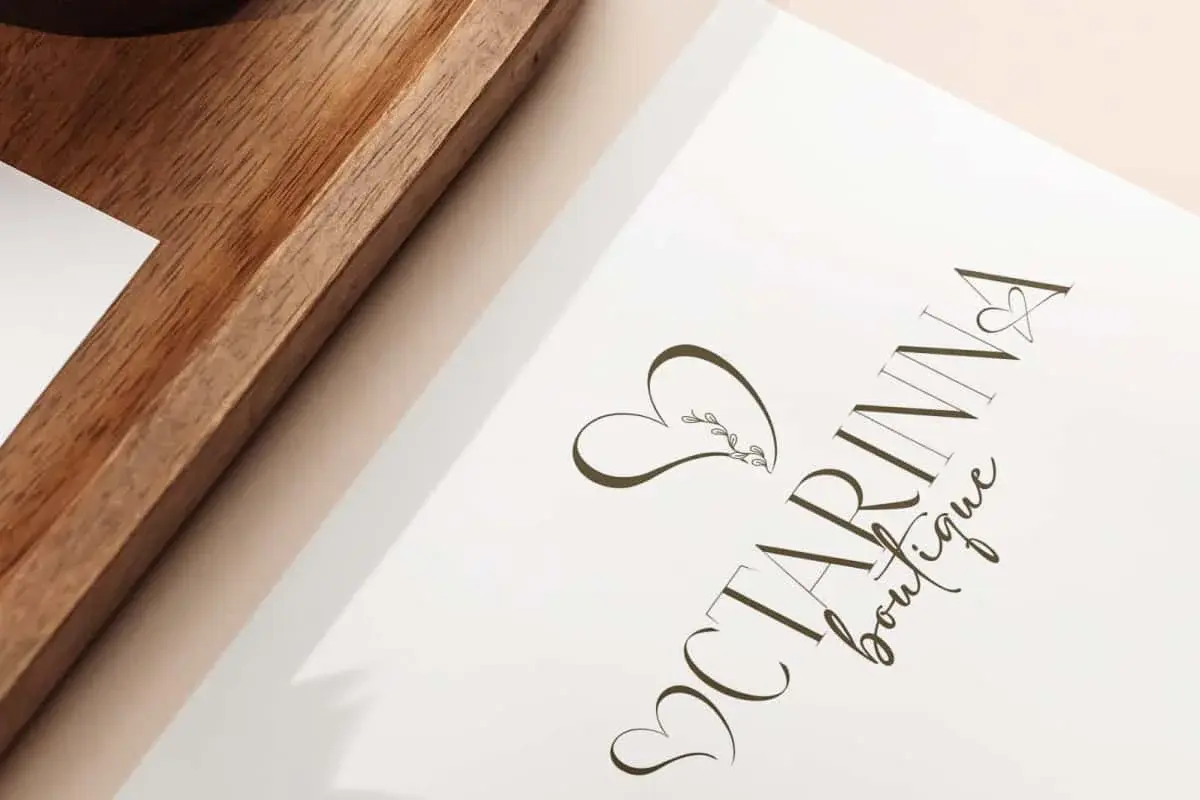 OCTARINNA
boutique